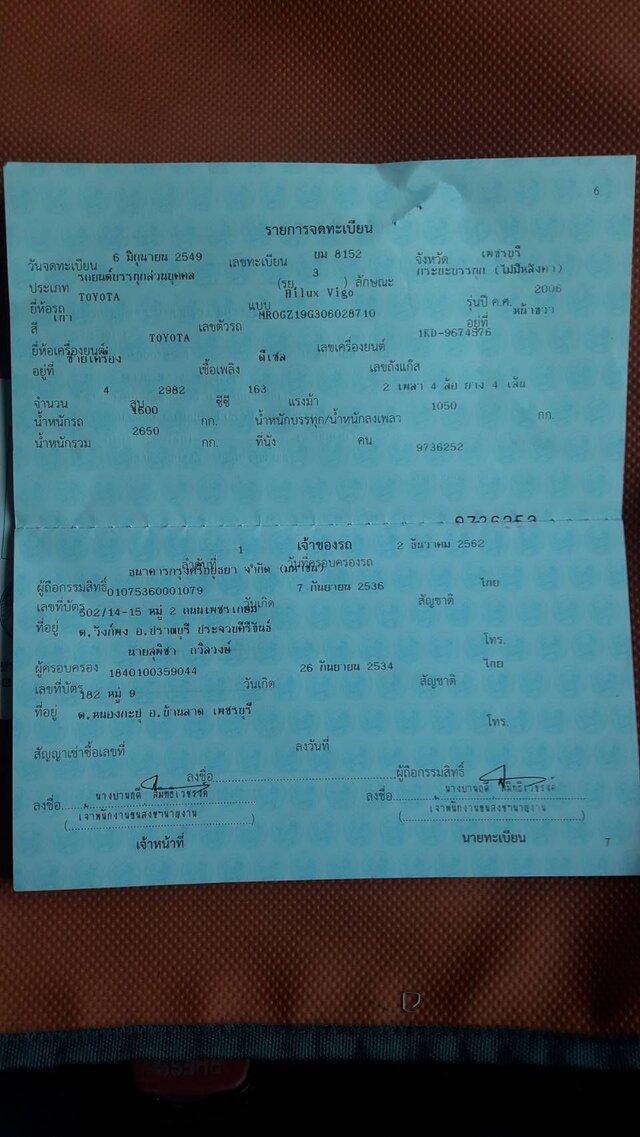 6
รายการจดทะเบียน
วันจดทะเบียน 6 มิถุนายน 2549 เลขทะเบียน บม 8152 จังหวัด เพชรบุรี
ประเภท รถยนต์บรรทุกส่วนบุคคล (รย. 3 ) ลักษณะ กระบะบรรทุก (ไม่มีหลังคา)
ยี่ห้อรถ TOYOTA แบบ Hilux Vigo รุ่นปี ค.ศ. 2006
สี เทา เลขตัวรถ MROGZ19G306028710 อยู่ที่ หน้าขวา
ยี่ห้อเครื่องยนต์ TOYOTA เลขเครื่องยนต์ 1KD-9674576
อยู่ที่ ซ้ายเครื่อง เชื้อเพลิง ดีเซล เลขถังแก๊ส
จำนวน 4 สูบ 2982 ซีซี 163 แรงม้า 2 เพลา 4 ล้อ ยาง 4 เส้น
น้ำหนักรถ 1600 กก. น้ำหนักบรรทุก/น้ำหนักลงเพลา 1050 กก.
น้ำหนักรวม 2650 กก. ที่นั่ง คน
9736252
9736252
เจ้าของรถ
ลำดับที่ 1 วันที่ครอบครองรถ 2 ธันวาคม 2562
ผู้ถือกรรมสิทธิ์ ธนาคารกรุงศรีอยุธยา จำกัด (มหาชน)
เลขที่บัตร 0107536001079 วันเกิด 7 กันยายน 2536 สัญชาติ ไทย
ที่อยู่ 502/14-15 หมู่ 2 ถนนเพชรเกษม
ต.วังก์พง อ.ปราณบุรี ประจวบคีรีขันธ์ โทร.
ผู้ครอบครอง นายสุพิชา ถวิลวงษ์
เลขที่บัตร 1840100359044 วันเกิด 26 กันยายน 2534 สัญชาติ ไทย
ที่อยู่ 182 หมู่ 9
ต.หนองกะปุ อ.บ้านลาด เพชรบุรี โทร.
สัญญาเช่าซื้อเลขที่ ลงวันที่
ลงชื่อ ผู้ถือกรรมสิทธิ์
ลงชื่อ ลงชื่อ
เจ้าพนักงานขนส่งชำนาญงาน เจ้าพนักงานขนส่งชำนาญงาน
เจ้าหน้าที่ นายทะเบียน
7